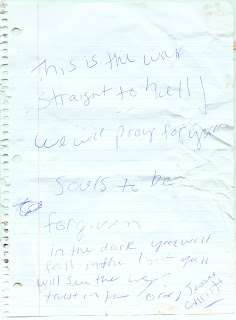 This is the way
straight to hell!
we will pray for your
souls to be
forgiven
in the dark you will
fall in the light you
will see the way.
trust in the Jesus
Christ